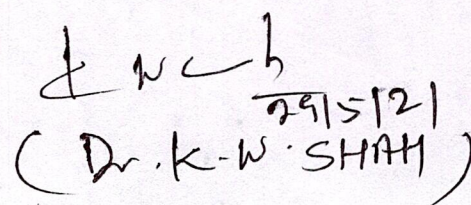 29/5/21
(Dr. K. W. SHAH)